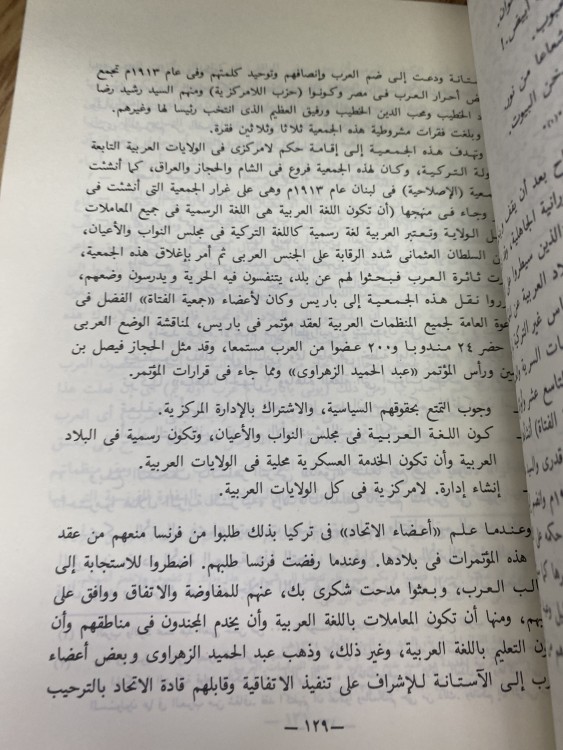 ـستـانـة ودعـت إلـى ضم العـرب وإنصافهم وتوحيد كلمتهم وفى عام ١٩١٣م تجمع
ـض أحـرار العـرب فـى مصر وكـونوا (حزب اللامركزية) ومنهم السيد رشيد رضا
ـد الخطيب ومحب الدين الخطيب ورفيق العظيم الذى انتخب رئيسا لها وغيرهم.
وبلغت فقرات مشروطية هذه الجمعية ثلاثا وثلاثين فقرة.
وتهدف هـذه الجمعيـة إلـى إقامـة حكم لامركزى فى الولايات العربية التابعة
ـولة التـركيـة، وكـان لهذه الجمعية فروع فى الشام والحجاز والعراق، كما أنشئت
ـعية (الإصلاحية) فى لبنان عام ١٩١٣م وهى على غرار الجمعية التى أنشئت فى
وجـاء فـى منهجها (أن تكون اللغة العربية هى اللغة الرسمية فى جميع المعاملات
ـل الـولايـة وتـعـتبر العربية لغة رسمية كاللغة التركية فى مجلس النواب والأعيان،
السلطان العثمانى شدد الرقابة على الجنس العربى ثم أمر بإغلاق هذه الجمعية،
ـت ثـائرة العـرب فبحثـوا لهم عن بلد، يتنفسون فيه الحرية و يدرسون وضعهم،
ـروا نقـل هـذه الجمعـية إلـى باريس وكان لأعضاء «جمعية الفتاة» الفضل فى
ـوة العامة لجميع المنظمات العربية لعقد مؤتمر فى باريس، لمناقشة الوضع العربى
حضر ٢٤ مندوبا و٢٠٠ عضوا من العرب مستمعا، وقد مثل الحجاز فيصل بن
ـين ورأس المؤتمر «عبد الحميد الزهراوى» ومما جاء فى قرارات المؤتمر.
ـ وجوب التمتع بحقوقهم السياسية، والاشتراك بالإدارة المركزية.
ـ كـون اللغـة العـربـيـة فى مجلس النواب والأعيان، وتكون رسمية فى البلاد
العربية وأن تكون الخدمة العسكرية محلية فى الولايات العربية.
ـ إنشاء إدارة. لامركزية فى كل الولايات العربية.
وعـندمـا علـم «أعضـاء الاتحاد» فى تركيا بذلك طلبوا من فرنسا منعهم من عقد
هذه المؤتمرات فى بلادها. وعندما رفضت فرنسا طلبهم. اضطروا للاستجابة إلى
ـالب العـرب، و بـعثوا مدحت شكرى بك، عنهم للمفاوضة والاتفاق ووافق على
ـهم، ومنها أن تكون المعاملات باللغة العربية وأن يخدم المجندون فى مناطقهم وأن
ـون التعليم باللغة العربية، وغير ذلك، وذهب عبد الحميد الزهراوى وبعض أعضاء
ـرب إلـى الآستانة للإشراف على تنفيذ الاتفاقية وقابلهم قادة الاتحاد بالترحيب
ـ ١٢٩ ـ